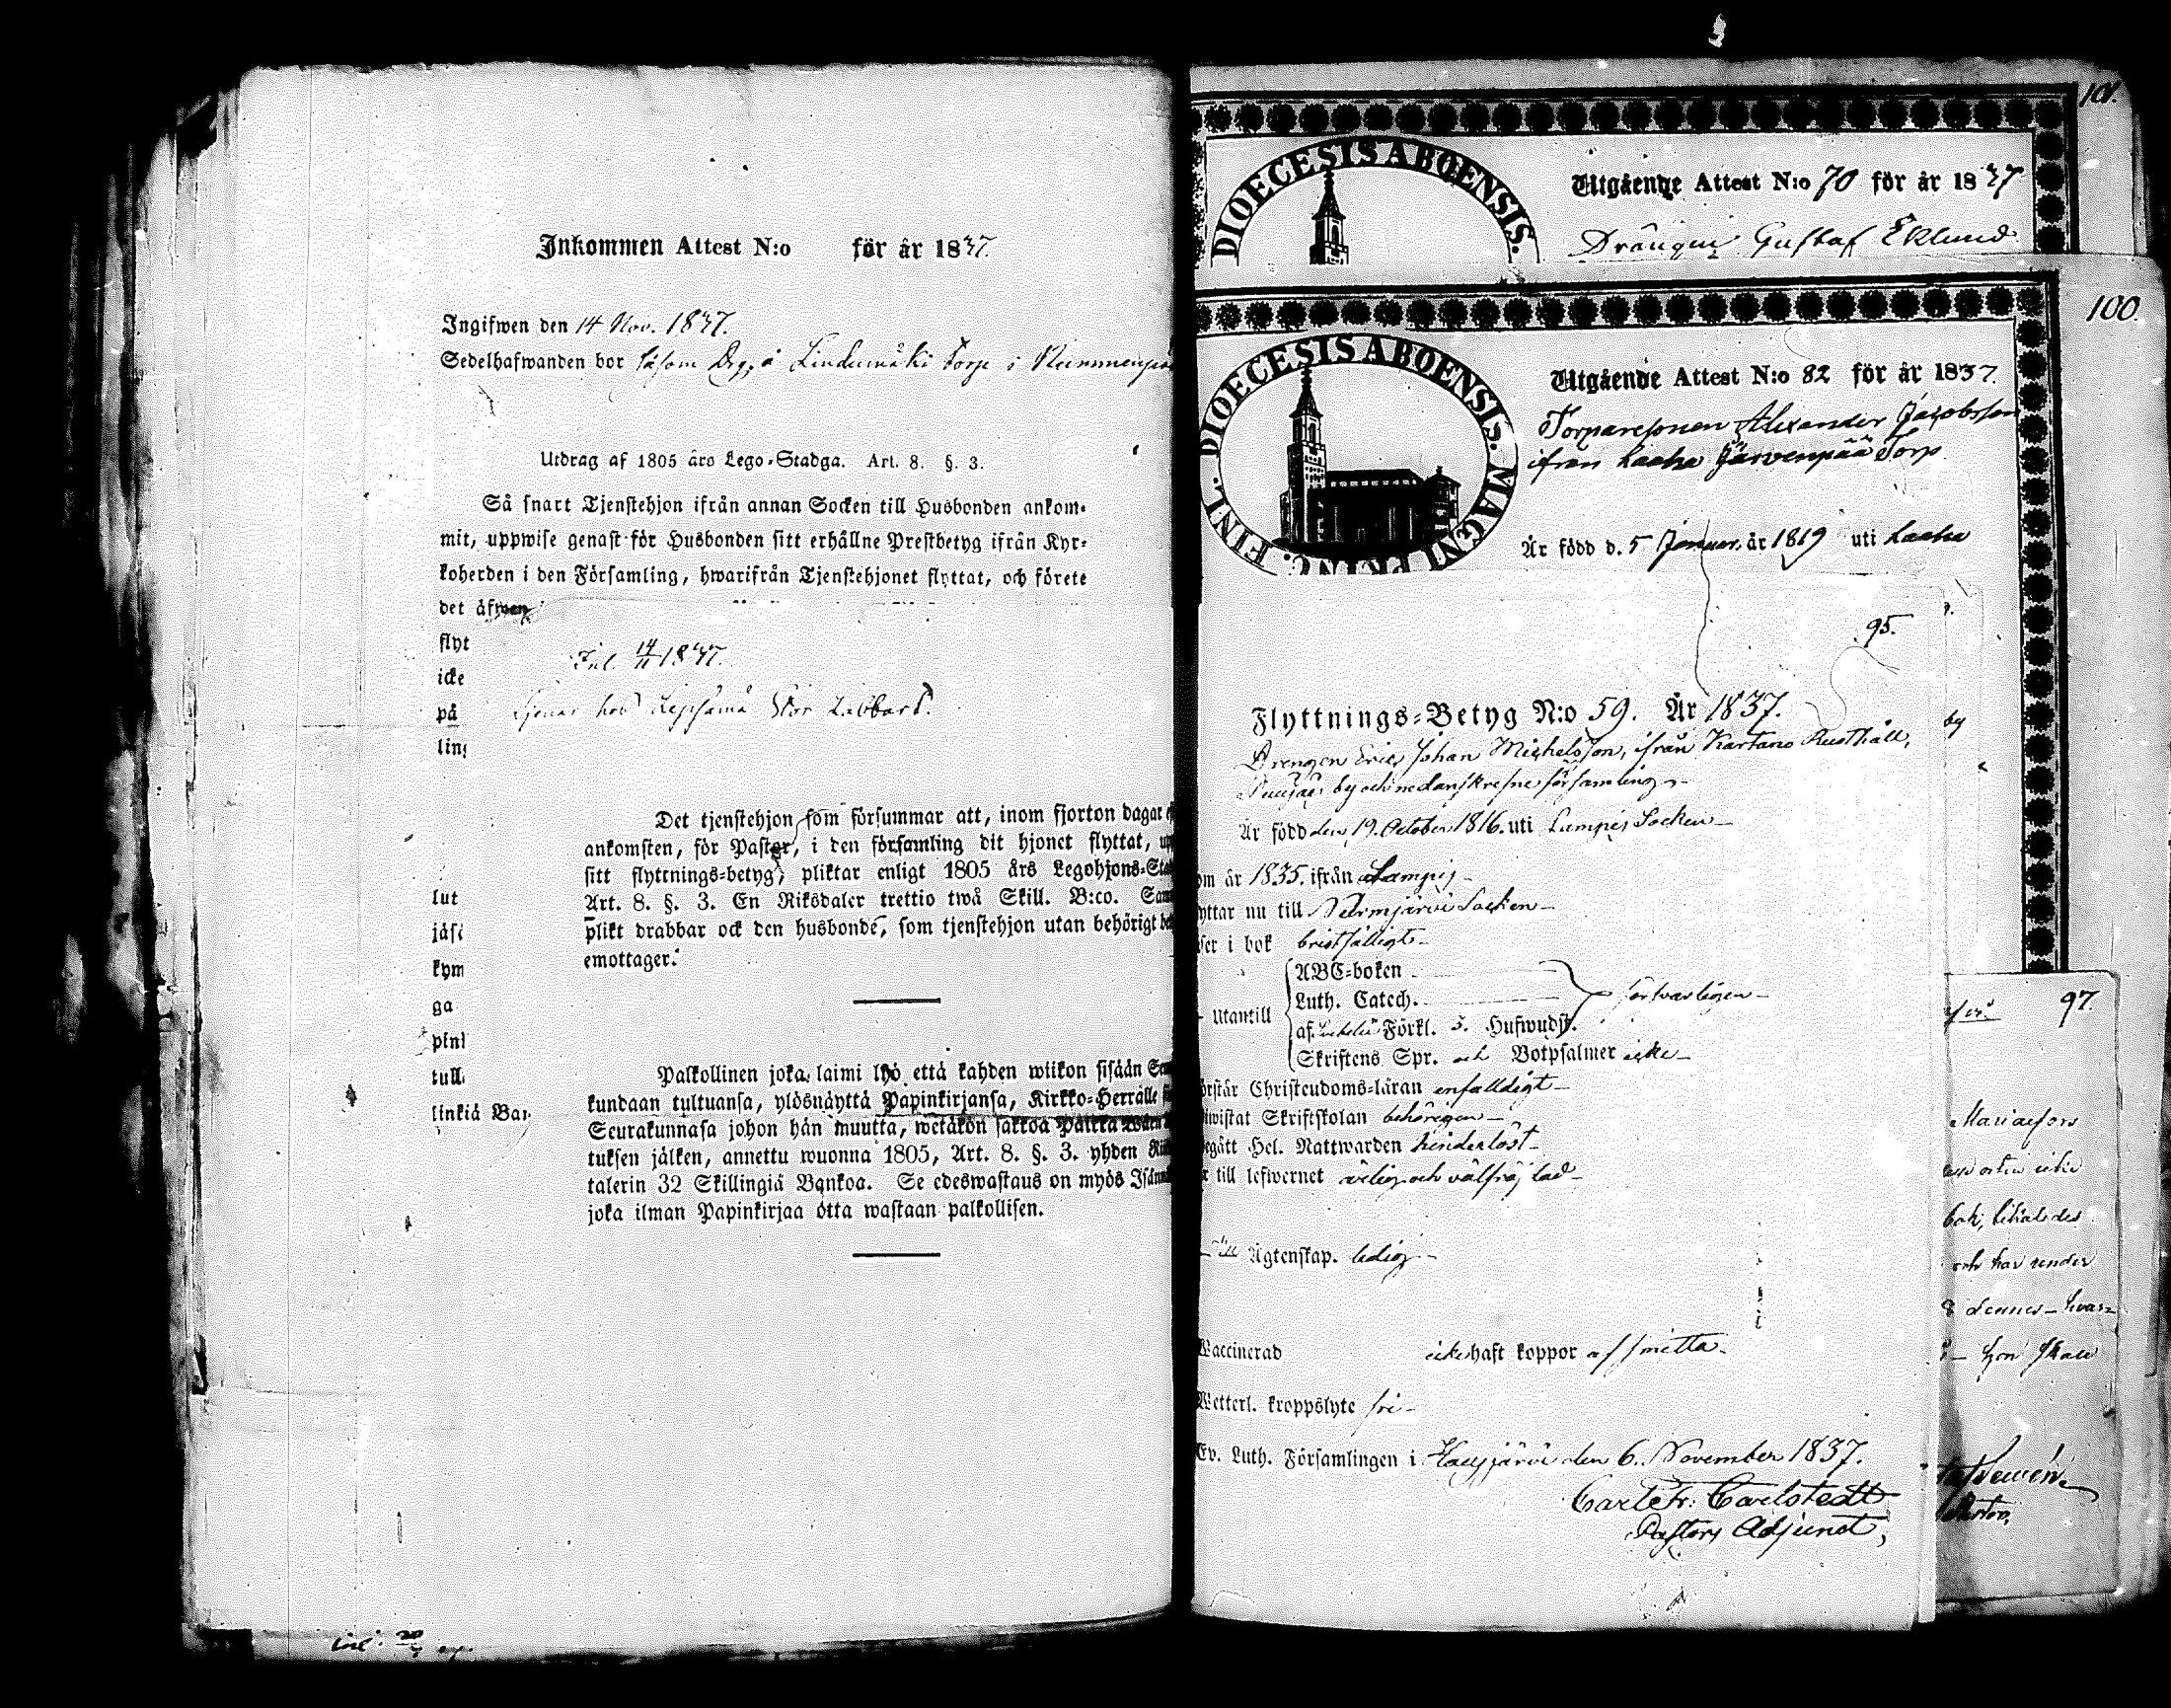 Inkommen Attest N:o för år 1837.
Ingifwen den 14 Nov. 1837.
Sedelhafwanden bor såsom Drg, å Lindemäki Torp i
Utdrag af 1805 års Lego-Stadga. Art. 8. §. 3.
Så snart Tjenstehjon ifrån annan Socken till Husbonden ankom-
mit, uppwise genast för Husbonden sitt erhållne Prestbetyg ifrån Kyr-
koherden i den Församling, hwarifrån Tjenstehjonet flyttat, och förete
det äfwen
flyt
icke
på
ling
Inl. 14/11 1837.
tjenar hos
Det tjenstehjon som försummar att, inom fjorton dagar
ankomsten, för Pastor, i den församling dit hjonet flyttat,
sitt flyttnings-betyg, pliktar enligt 1805 års Legohjons-
Art. 8. §. 3. En Riksdaler trettio twå Skill. B:co.
plikt drabbar ock den husbonde, som tjenstehjon utan behörigt
emottager.
lut
jäse
kym
ga
pin
tull
linkiä Ban
Palkollinen joka laimi lyö että kahden wiikon sisään
kundaan tultuansa, ylösnäyttä Papinkirjansa, Kirkko-Herralle
Seurakunnasa johon hän muutta, wetäkön sakkoa
tuksen jälken, annettu wuonna 1805, Art. 8. §. 3. yhden
talerin 32 Skillingiä Bankoa. Se edeswastaus on myös
joka ilman Papinkirjaa otta wastaan palkollisen.
101.
DIOECESIS ABOENSIS.
Utgående Attest N:o 70 för år 1837
Drängen Gustaf Eklund
100.
FINL. DIOECESIS ABOENSIS. MAGNI PRINC.
Utgående Attest N:o 82 för år 1837.
Torparesonen Alexander Jacobsson
ifrån Laaha Järvenpää Torp
Är född d. 5 Januar. år 1819 uti Laaha
95.
Flyttnings-Betyg N:o 59. År 1837.
Drengen Eric Johan Michelsson, ifrån Kartano Rusthåll,
by och nedanskrefne församling
Är född den 19. October 1816. uti Lampis Socken
om år 1835. ifrån Lampis
yttar nu till Nurmjärvi Socken
ser i bok bristfälligt
Utantill
ABC-boken
Luth. Catech.
af Förkl. 5. Hufwudst.
försvarligen
Skriftens Spr. och Botpsalmer icke
örstår Christendoms-läran enfalldigt
iwistat Skriftskolan behörigen
egått Hel. Nattwarden hinderlöst
r till lefwernet ärlig och välfräjdad
till Ägtenskap. ledig
Waccinerad icke haft koppor af smitta
Wetterl. kroppslyte fri
Ev. Luth. Församlingen i Hausjärvi den 6. November 1837.
Carl Fr: Carlstedt
Pastors Adjunct,
by
97.
Mariaefors
orten icke
bok, likaledes
och har under
hvar-
hon skall